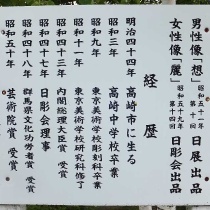 男性像「想」 昭和五十年 第十回 日展出品
女性像「麗」 昭和五十九年 第十四回 日彫会出品
経歴
明治四十四年 高崎市に生る
昭和三年 高崎中学校卒業
昭和九年 東京美術学校彫刻科卒業
昭和十一年 東京美術学校研究科修了
昭和四十三年 内閣総理大臣賞 受賞
昭和四十七年 日彫会理事
昭和四十八年 群馬県文化功労者賞 受賞
昭和五十年 芸術院賞 受賞